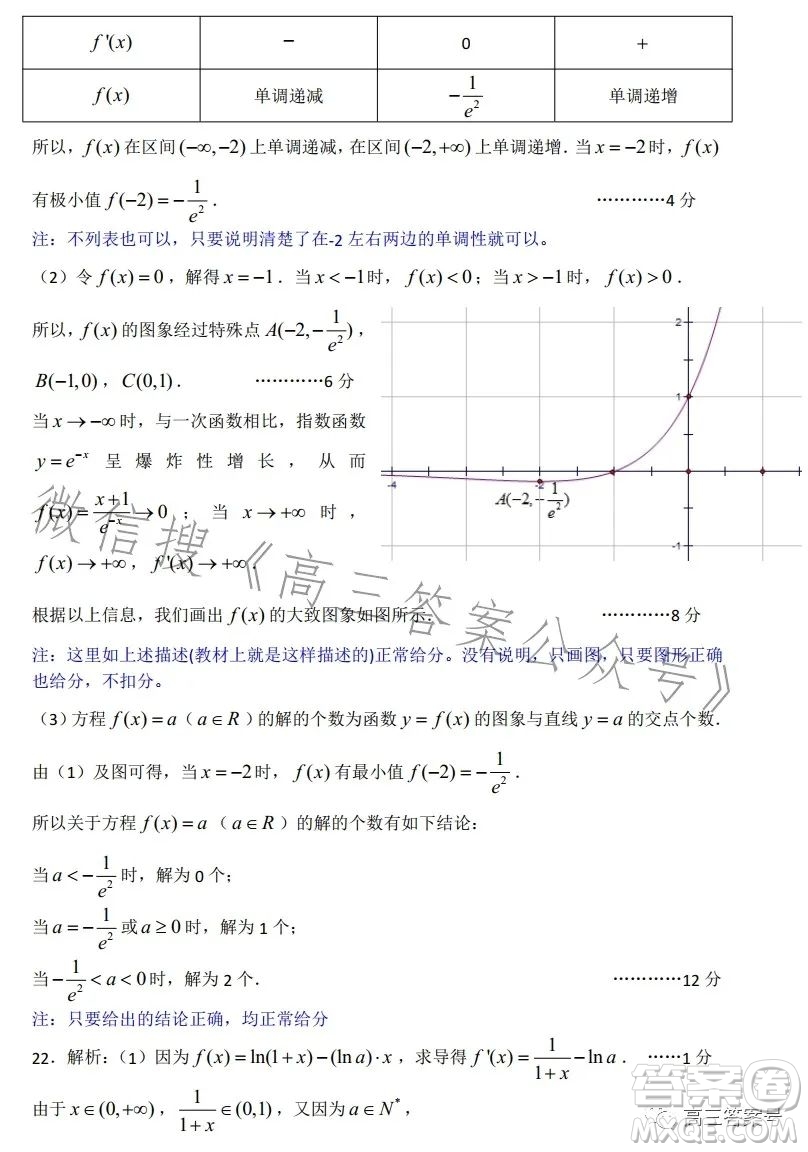 f'(x) − 0 +
f(x) 单调递减 −1/e² 单调递增
所以，f(x)在区间(−∞,−2)上单调递减，在区间(−2,+∞)上单调递增．当x=−2时，f(x)
有极小值f(−2)=−1/e²． …………4 分
注：不列表也可以，只要说明清楚了在-2 左右两边的单调性就可以。
（2）令f(x)=0，解得x=−1．当x<−1时，f(x)<0；当x>−1时，f(x)>0．
所以，f(x)的图象经过特殊点A(−2,−1/e²)，
B(−1,0)，C(0,1)． …………6 分
当x→−∞时，与一次函数相比，指数函数
y=e⁻ˣ 呈爆炸性增长，从而
f(x)=(x+1)/e⁻ˣ→0；当x→+∞时，
f(x)→+∞，f'(x)→+∞．
2
1
-4
-2
A(−2,−1/e²)
-1
根据以上信息，我们画出f(x)的大致图象如图所示． …………8 分
注：这里如上述描述(教材上就是这样描述的)正常给分。没有说明，只画图，只要图形正确
也给分，不扣分。
（3）方程f(x)=a（a∈R）的解的个数为函数y=f(x)的图象与直线y=a的交点个数．
由（1）及图可得，当x=−2时，f(x)有最小值f(−2)=−1/e²．
所以关于方程f(x)=a（a∈R）的解的个数有如下结论：
当a<−1/e²时，解为 0 个；
当a=−1/e²或a≥0时，解为 1 个；
当−1/e²<a<0时，解为 2 个． …………12 分
注：只要给出的结论正确，均正常给分
22．解析：（1）因为f(x)=ln(1+x)−(ln a)·x，求导得f'(x)=1/(1+x)−ln a． ……1 分
由于x∈(0,+∞)，1/(1+x)∈(0,1)，又因为a∈N*，
微信搜《高三答案公众号》
答案卷
高三答案号
MXQE.COM